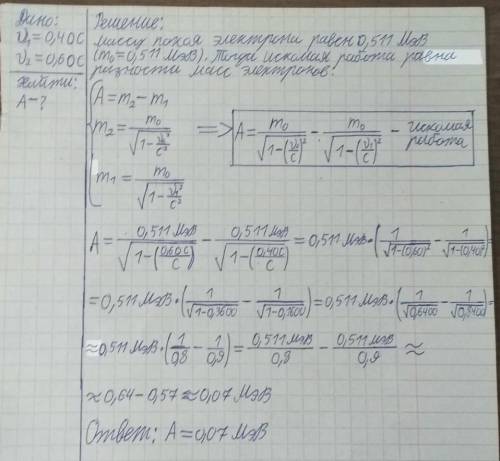 Дано:
υ₁ = 0,40c
υ₂ = 0,60c
Найти:
A - ?
Решение:
Массу покоя электрона равен 0,511 МэВ
(m₀ = 0,511 МэВ). Тогда искомая работа равна
разности масс электронов:
A = m₂ - m₁
m₂ = m₀/√(1 - υ₂²/c²) => A = m₀/√(1 - (υ₂/c)²) - m₀/√(1 - (υ₁/c)²) - искомая работа
m₁ = m₀/√(1 - υ₁²/c²)
A = 0,511 МэВ/√(1 - (0,60c/c)) - 0,511 МэВ/√(1 - (0,40c/c)) = 0,511 МэВ * (1/√(1-(0,60)²) - 1/√(1-(0,40)²)
= 0,511 МэВ * (1/√(1-0,3600) - 1/√(1-0,1600)) = 0,511 МэВ * (1/√0,6400 - 1/√0,8400) =
≈ 0,511 МэВ * (1/0,8 - 1/0,9) = 0,511 МэВ/0,8 - 0,511 МэВ/0,9 ≈
≈ 0,64 - 0,57 ≈ 0,07 МэВ
Ответ: A = 0,07 МэВ